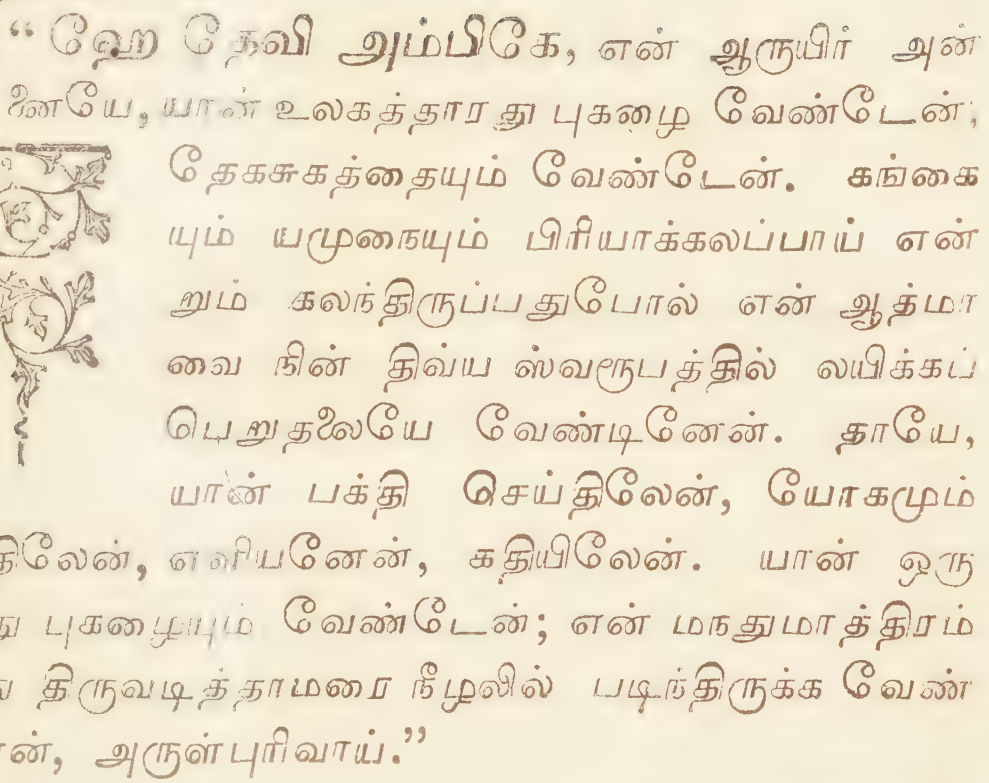 “ ஹே தேவி அம்பிகே, என் ஆருயிர் அன்
னையே, யான் உலகத்தாரது புகழை வேண்டேன்;
தேகசுகத்தையும் வேண்டேன். கங்கை
யும் யமுநையும் பிரியாக்கலப்பாய் என்
றும் கலந்திருப்பதுபோல் என் ஆத்மா
வை நின் திவ்ய ஸ்வரூபத்தில் லயிக்கப்
பெறுதலையே வேண்டினேன். தாயே,
யான் பக்தி செய்திலேன், யோகமும்
எளியனேன், கதியிலேன். யான் ஒரு
புகழையும் வேண்டேன்; என் மநதுமாத்திரம்
திருவடித்தாமரை நீழலில் படிந்திருக்க வேண்
அருள்புரிவாய்.”